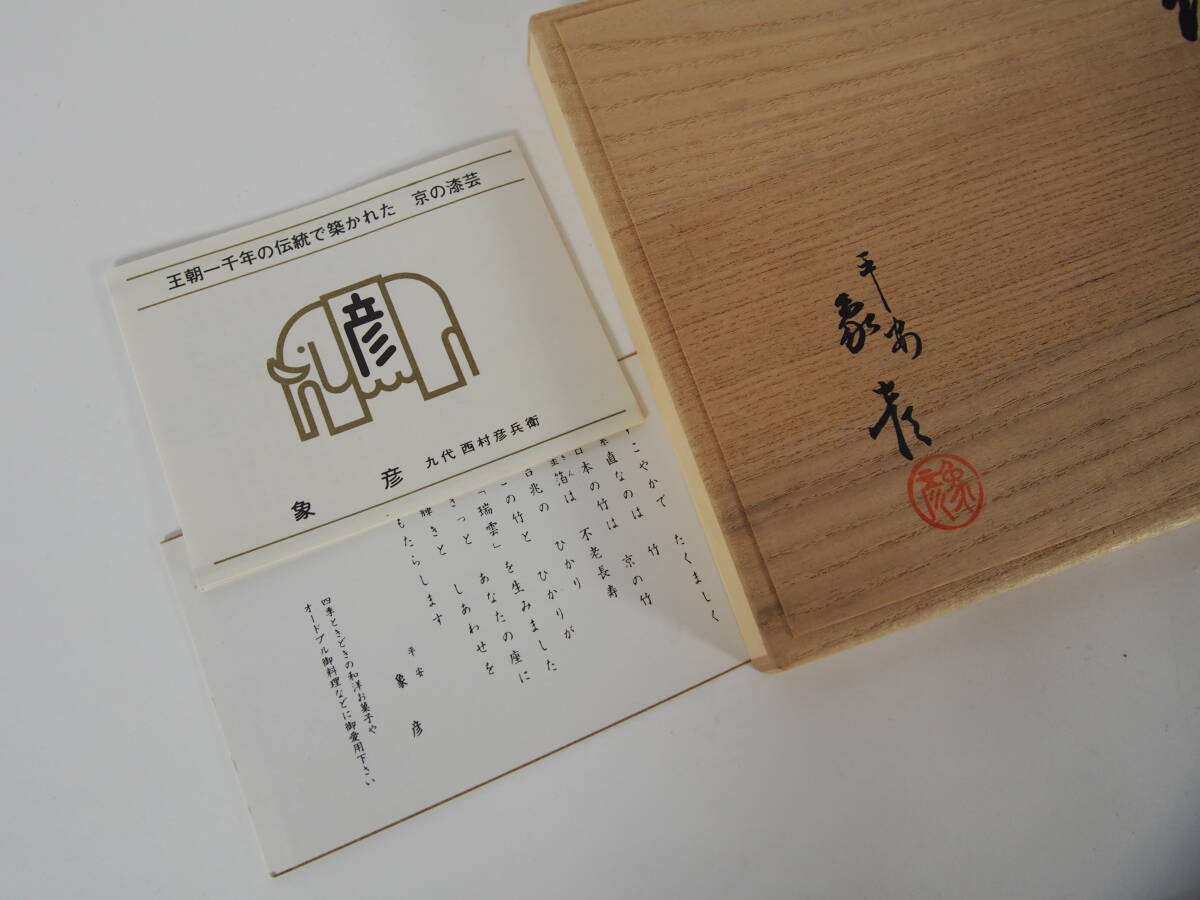 王朝一千年の伝統で築かれた 京の漆芸
彦
象 彦 九代 西村彦兵衛
すこやかで たくましく
素直なのは 京の竹
日本の竹は 不老長寿
金箔は ひかり
吉兆の ひかりが
この竹と
「瑞雲」を生みました
きっと あなたの座に
輝きと しあわせを
もたらします
平安 象彦
四季ときどきの和洋お菓子や
オードブル御料理などに御愛用下さい
平安
象彦
象彦